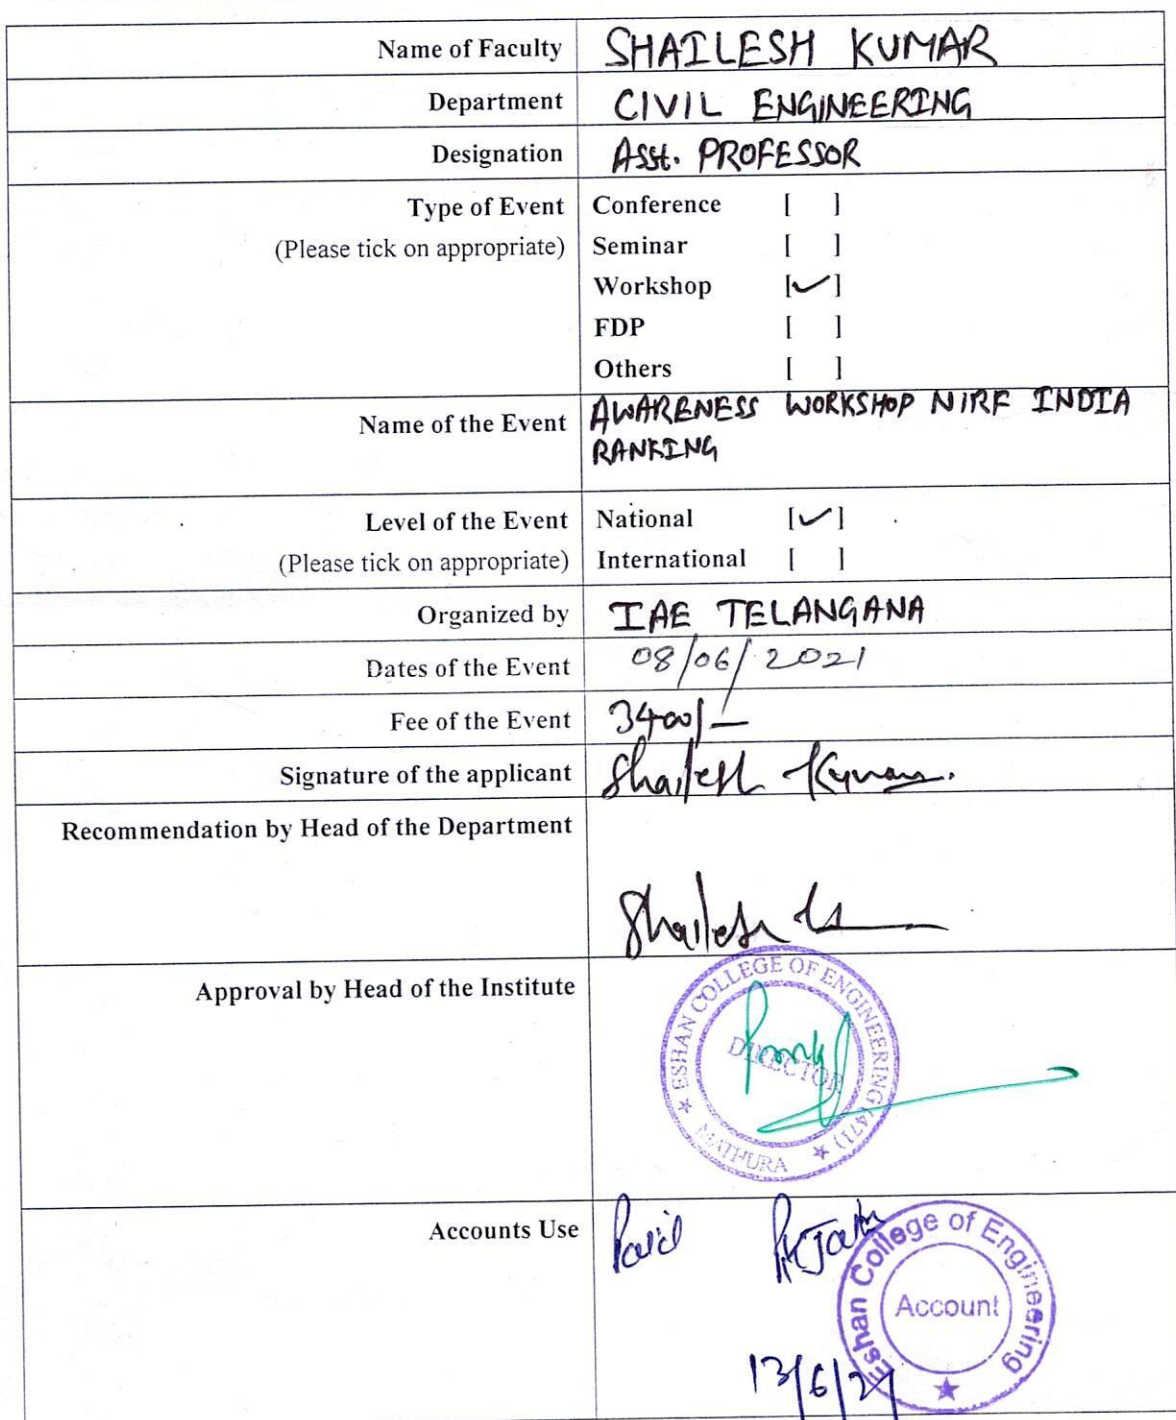 Name of Faculty SHAILESH KUMAR
Department CIVIL ENGINEERING
Designation ASst. PROFESSOR
Type of Event Conference [ ]
(Please tick on appropriate) Seminar [ ]
Workshop [✓]
FDP [ ]
Others [ ]
Name of the Event AWARENESS WORKSHOP NIRF INDIA
RANKING
Level of the Event National [✓]
(Please tick on appropriate) International [ ]
Organized by IAE TELANGANA
Dates of the Event 08/06/2021
Fee of the Event 3400/-
Signature of the applicant Shailesh Kumar.
Recommendation by Head of the Department
Shailesh
Approval by Head of the Institute
★ ESHAN COLLEGE OF ENGINEERING (471) ★
DIRECTOR
MATHURA
Accounts Use Paid
Eshan College of Engineering
Account
★
13/6/21